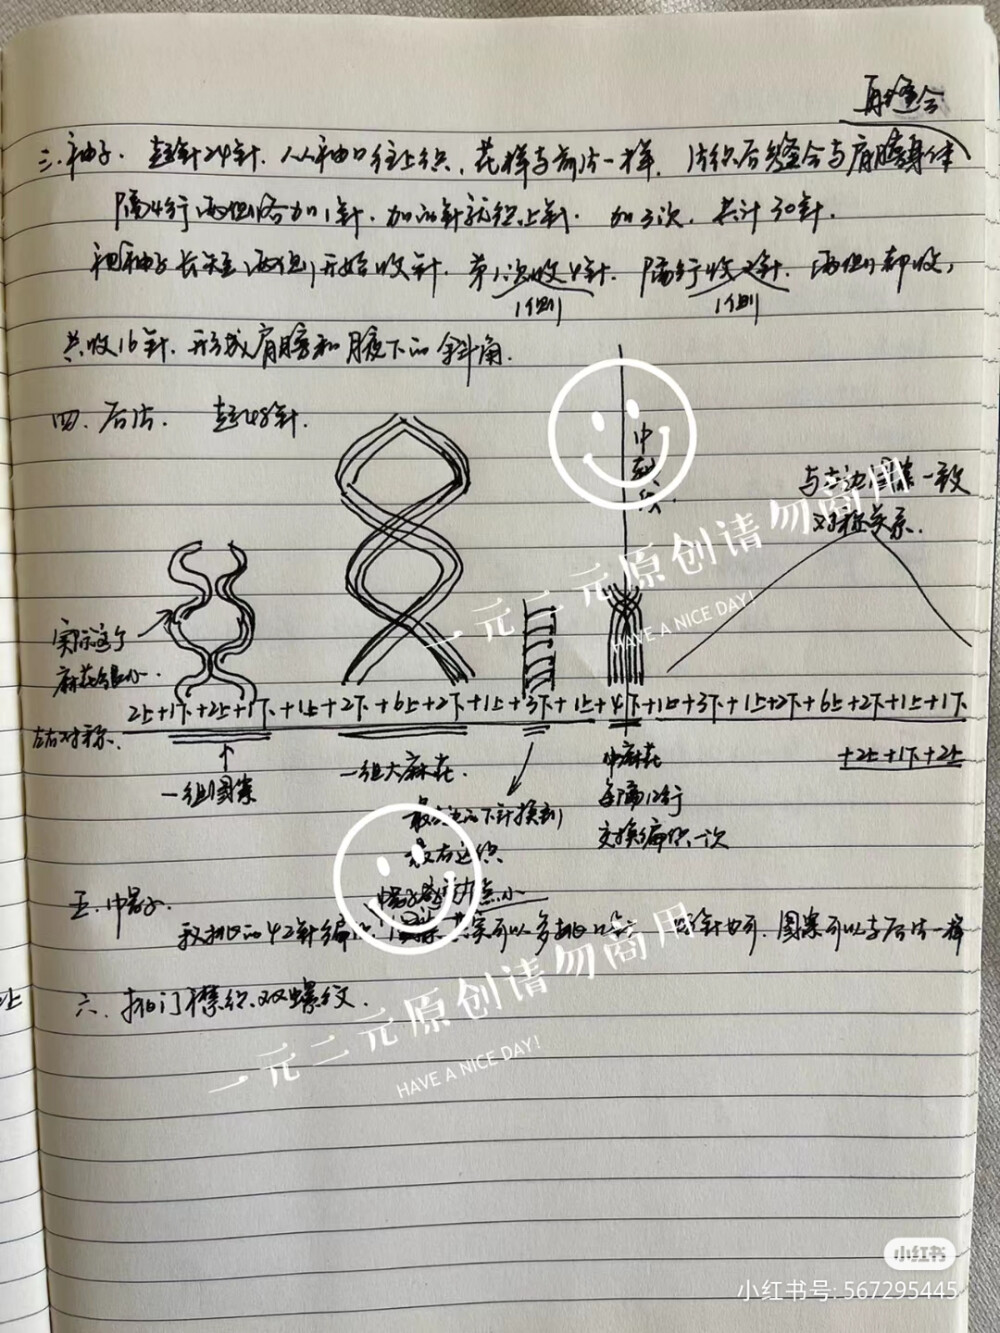 再缝合
三、袖子. 起针24针. 从袖口往上织, 花样与前片一样, 片织后缝合与肩膀身体
隔4行两侧各加1针. 加的针就织上针. 加3次, 共计30针.
袖子长 两侧开始收针. 第1次收4针. 隔行收2针. 两侧都收,
1侧 1侧
共收16针. 形成肩膀和腋下的斜角.
四. 后片. 起48针.
中
线
与左边图案一致
对称关系.
实际这个
麻花组小.
左右对称.
2上+1下+2上+1下+1上+2下+6上+2下+1上+3下+1上+4下+1上+3下+1上+2下+6上+2下+1上+1下
+2上+1下+2上
一组图案
一组大麻花.
最左边的下针换到
最右边织
中麻花
每隔12行
交换编织一次
五. 帽子.
帽子
的42针编 可以多挑 针也可. 图案可以与后片一样
六. 门襟织双螺纹.
上
一元二元原创请勿商用
HAVE A NICE DAY!
一元二元原创请勿商用
HAVE A NICE DAY!
小红书
小红书号: 567295445